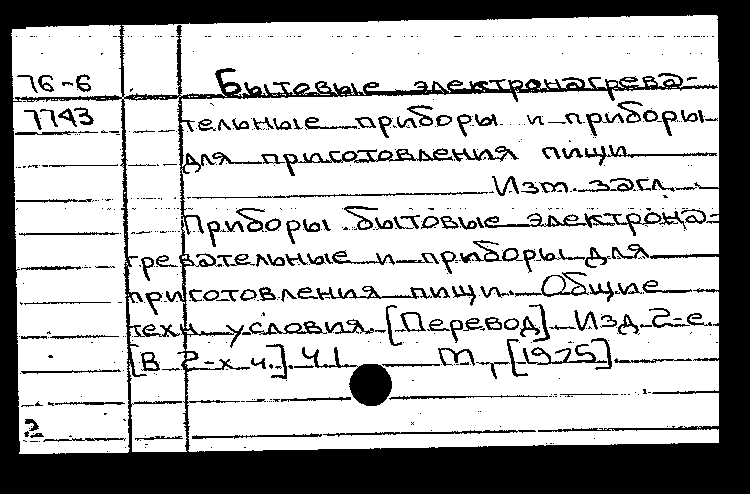 76-6 Бытовые электронагрева-
7743 тельные приборы и приборы
для приготовления пищи.
Изм. загл.
Приборы бытовые электрона-
гревательные и приборы для
приготовления пищи. Общие
техн. условия. [Перевод]. Изд. 2-е.
[В 2-х ч.]. Ч. 1 М., [1975].
2